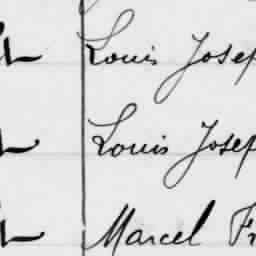 Louis Josep
Louis Josep
Marcel Fr